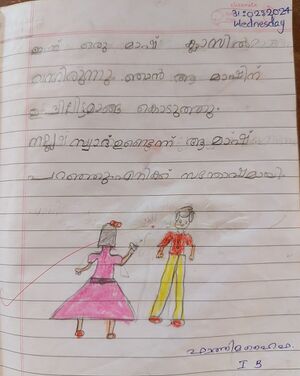 31:02:2024
Wednesday
ഇന്ന് ഒരു മാഷ് ക്ലാസിൽ
വന്നിരുന്നു. ഞാൻ ആ മാഷിന്
ഉപ്പിലിട്ടമാങ്ങ കൊടുത്തു.
നല്ല സ്വാദ്ഉണ്ടെന്ന് ആ മാഷ്
പറഞ്ഞു. എനിക്ക് സന്തോഷമായി.
I B